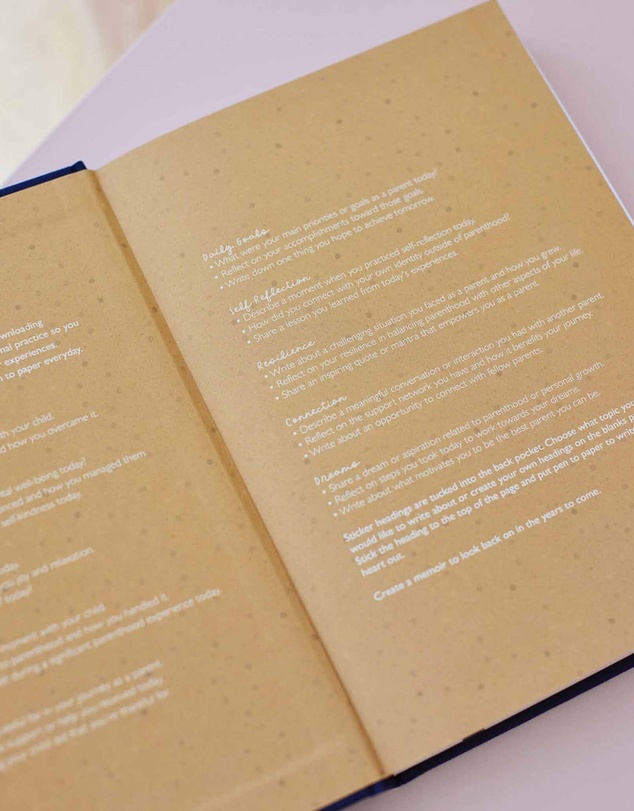 wnloading
nal practice so you
experiences.
n to paper everyday.
th your child.
d how you overcame it.
tal well-being today?
nced and how you managed them.
self kindness today.
joy and relaxation.
today?
moment with your child.
to parenthood and how you handled it.
during a significant parenthood experience today.
for in your journey as a parent.
support or help you received today.
that you're thankful for
Daily Goals
• What were your main priorities or goals as a parent today?
• Reflect on your accomplishments toward those goals.
• Write down one thing you hope to achieve tomorrow.
Self Reflection
• Describe a moment when you practiced self-reflection today.
• How did you connect with your own identity outside of parenthood?
• Share a lesson you learned from today's experiences.
Resilience
• Write about a challenging situation you faced as a parent and how you grew.
• Reflect on your resilience in balancing parenthood with other aspects of your life.
• Share an inspiring quote or mantra that empowers you as a parent.
Connection
• Describe a meaningful conversation or interaction you had with another parent
• Reflect on the support network you have and how it benefits your journey.
• Write about an opportunity to connect with fellow parents.
Dreams
• Share a dream or aspiration related to parenthood or personal growth.
• Reflect on steps you took today to work towards your dreams.
• Write about what motivates you to be the best parent you can be.
Sticker headings are tucked into the back pocket. Choose what topic you
would like to write about or create your own headings on the blanks p
Stick the heading to the top of the page and put pen to paper to write
heart out.
Create a memoir to look back on in the years to come.